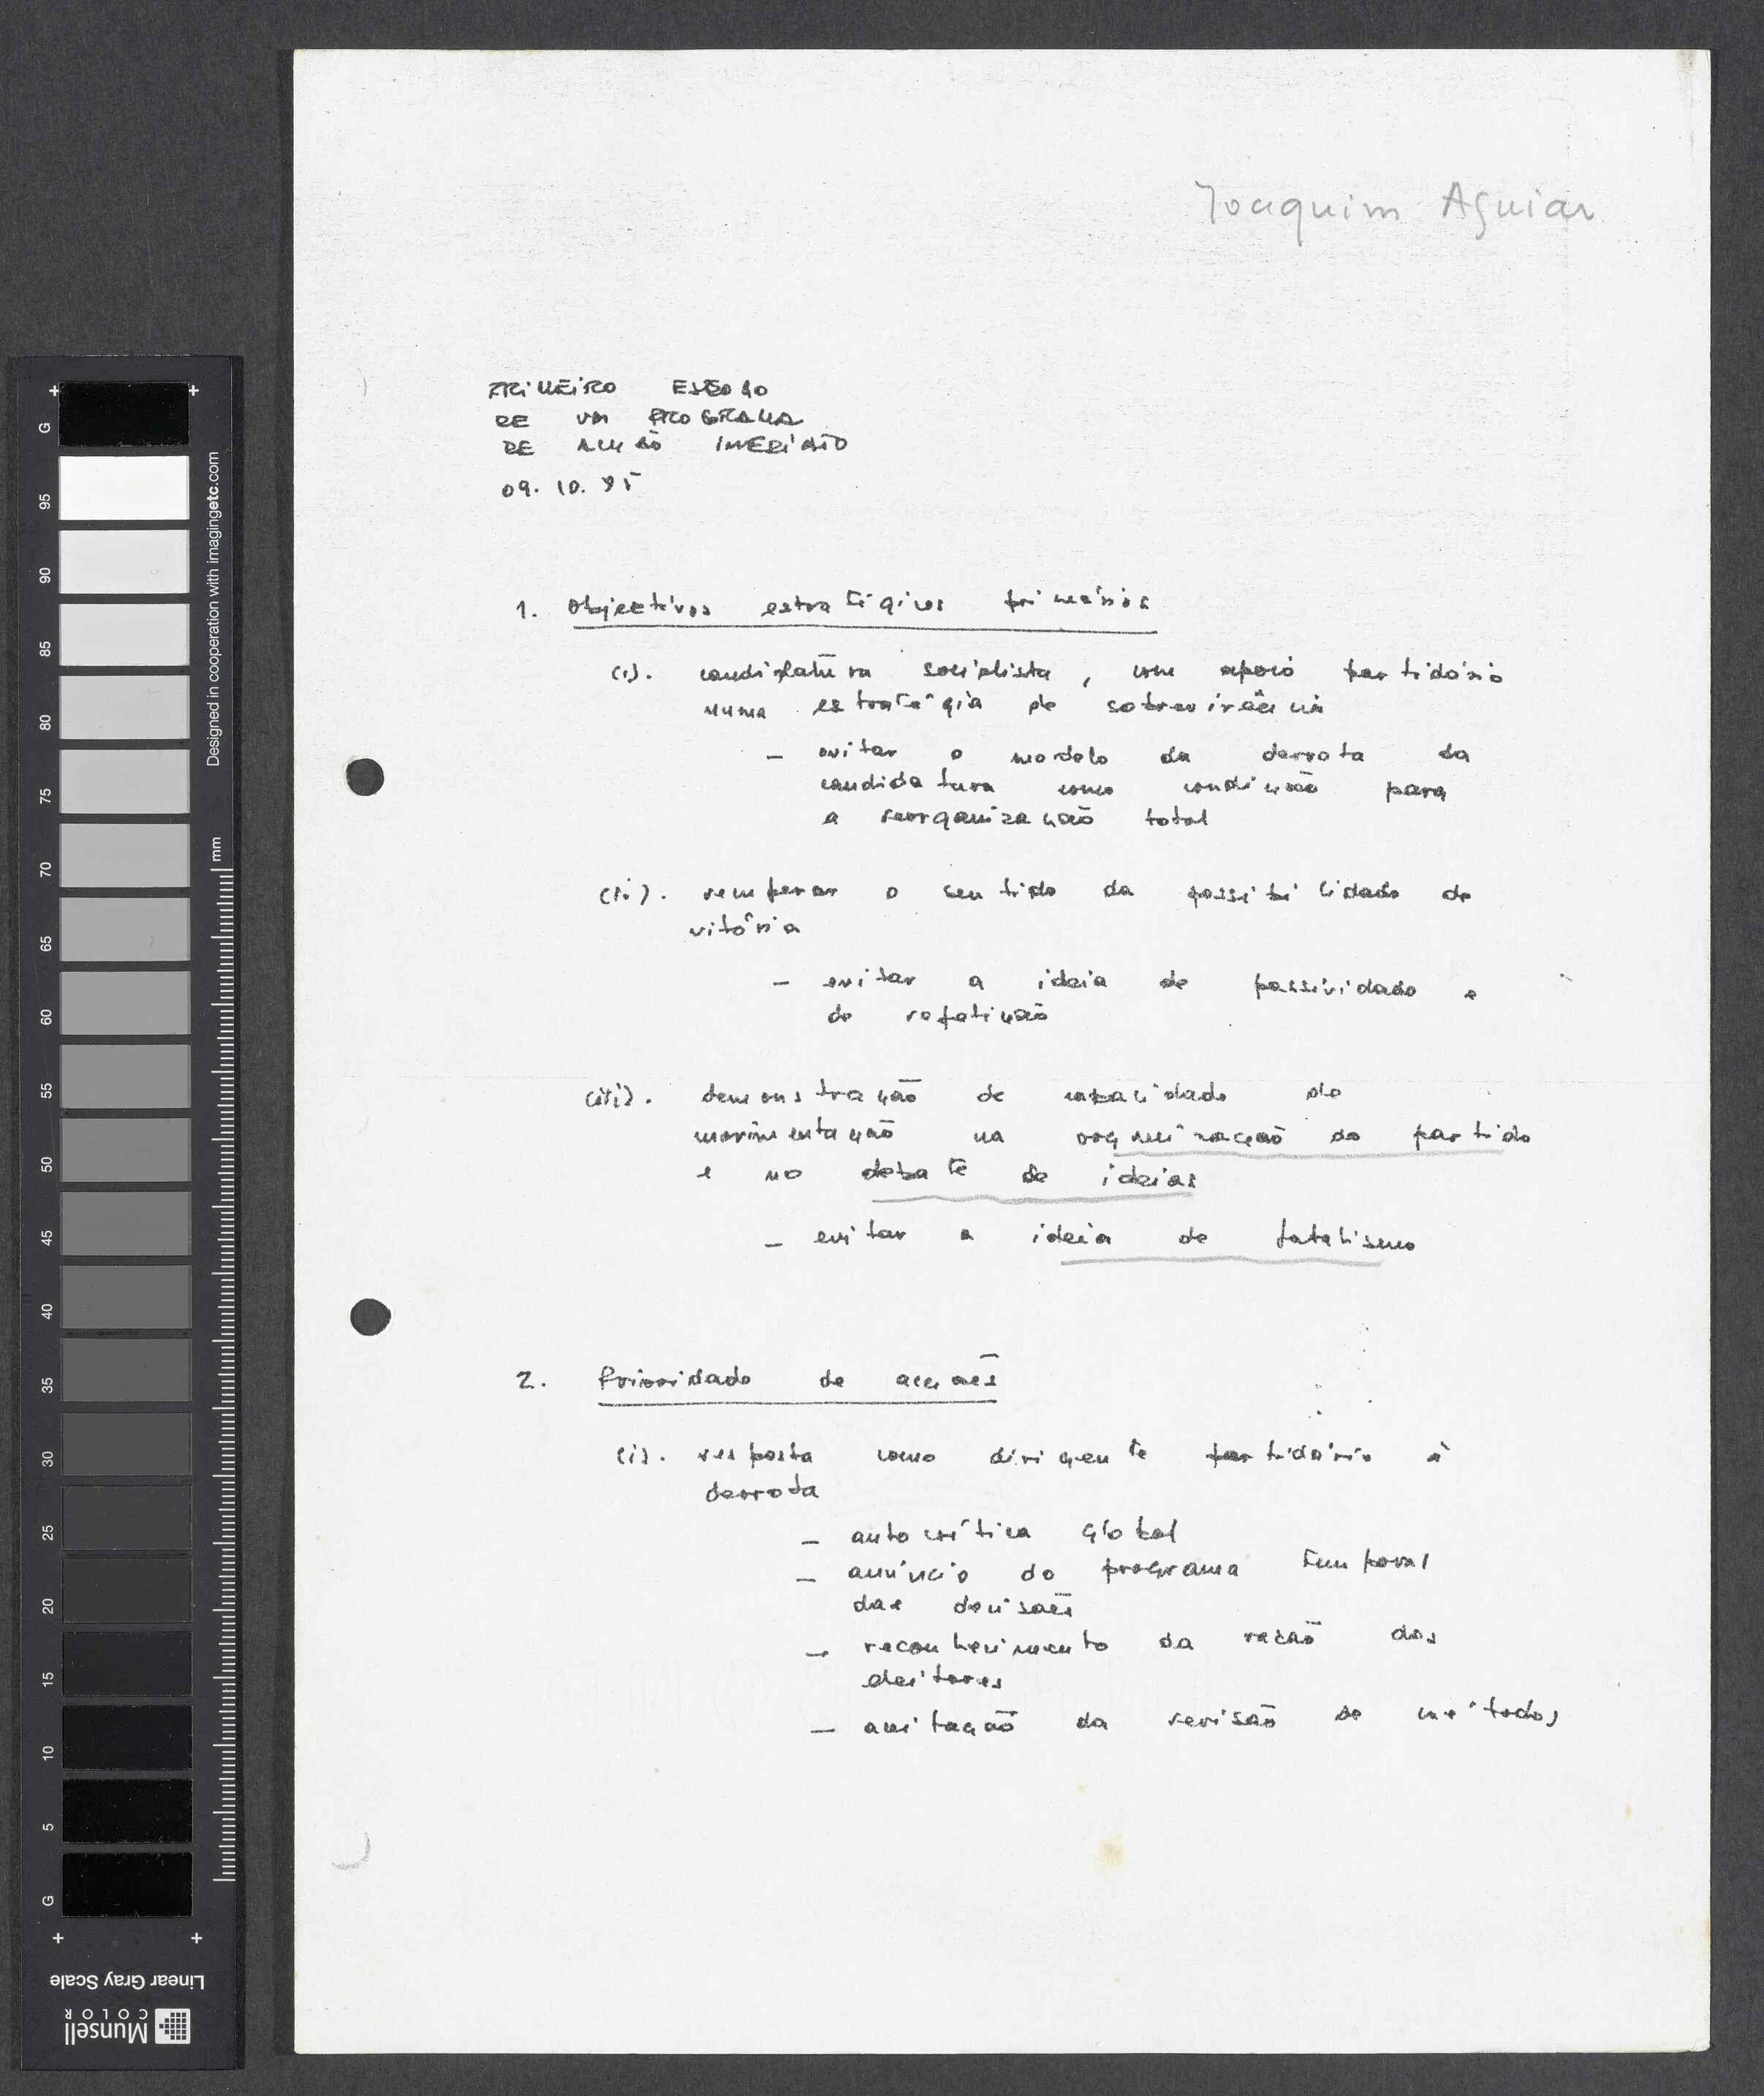 Joaquim Aguiar
PRIMEIRO ESBOÇO
DE UM PROGRAMA
DE ACÇÃO IMEDIATO
09.10.85
1. Objectivos estratégicos primários
(i). candidatura socialista, com apoio partidário
numa estratégia de sobrevivência
- evitar o modelo da derrota da
candidatura como condição para
a reorganização total
(ii). recuperar o sentido da possibilidade de
vitória
- evitar a ideia de passividade e
de repetição
(iii). demonstração de capacidade de
movimentação na organização do partido
e no debate de ideias
- evitar a ideia de fatalismo
2. Prioridade de acções
(i). resposta como dirigente partidário à
derrota
- autocrítica global
- anúncio do programa temporal
das decisões
- reconhecimento da razão dos
eleitores
- aceitação da revisão de métodos
G
95
90
85
80
75
70
65
60
55
50
45
40
35
30
25
20
15
10
5
G
Designed in cooperation with imagingetc.com
mm
Linear Gray Scale
Munsell
COLOR